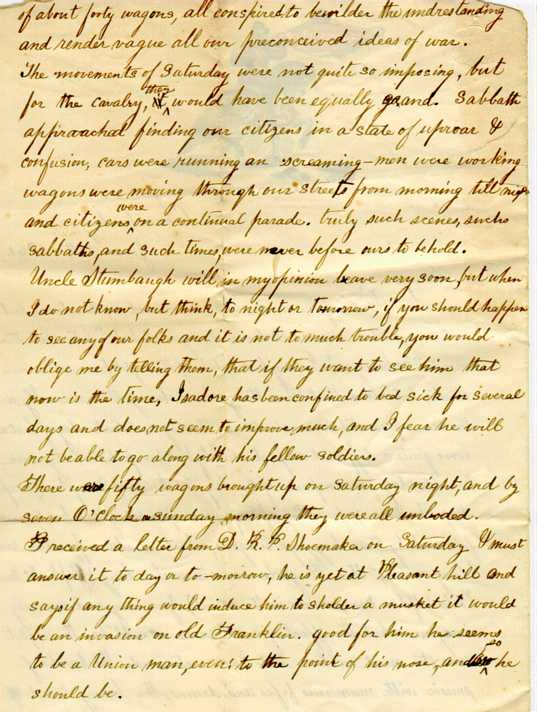 of about forty wagons, all conspired to bewilder the understanding
and render vague all our preconceived ideas of war.
The movements of Saturday were not quite so imposing, but
for the cavalry, they would have been equally grand. Sabbath
approached finding our citizens in a state of uproar &
confusion, cars were running an screaming—men were working
wagons were moving through our streets from morning till night
and citizens were on a continual parade. truly such scenes, such
sabbaths, and such times, were never before ours to behold.
Uncle Stumbaugh will in my opinion leave very soon, but when
I do not know, but think, to night or tomorrow, if you should happen
to see any of our folks and it is not to much trouble, you would
oblige me by telling them, that if they want to see him that
now is the time, Isadore has been confined to bed sick for several
days and does not seem to improve much, and I fear he will
not be able to go along with his fellow soldiers.
There were fifty wagons brought up on Saturday night, and by
seven O'clock sunday morning they were all unloded.
I received a letter from D. K. P. Shoemaker on Saturday & must
answer it to day or to-morrow, he is yet at Pleasant hill and
says if any thing would induce him to sholder a musket it would
be an invasion on old Franklin. good for him he seems
to be a Union man, even to the point of his nose, and so he
should be.